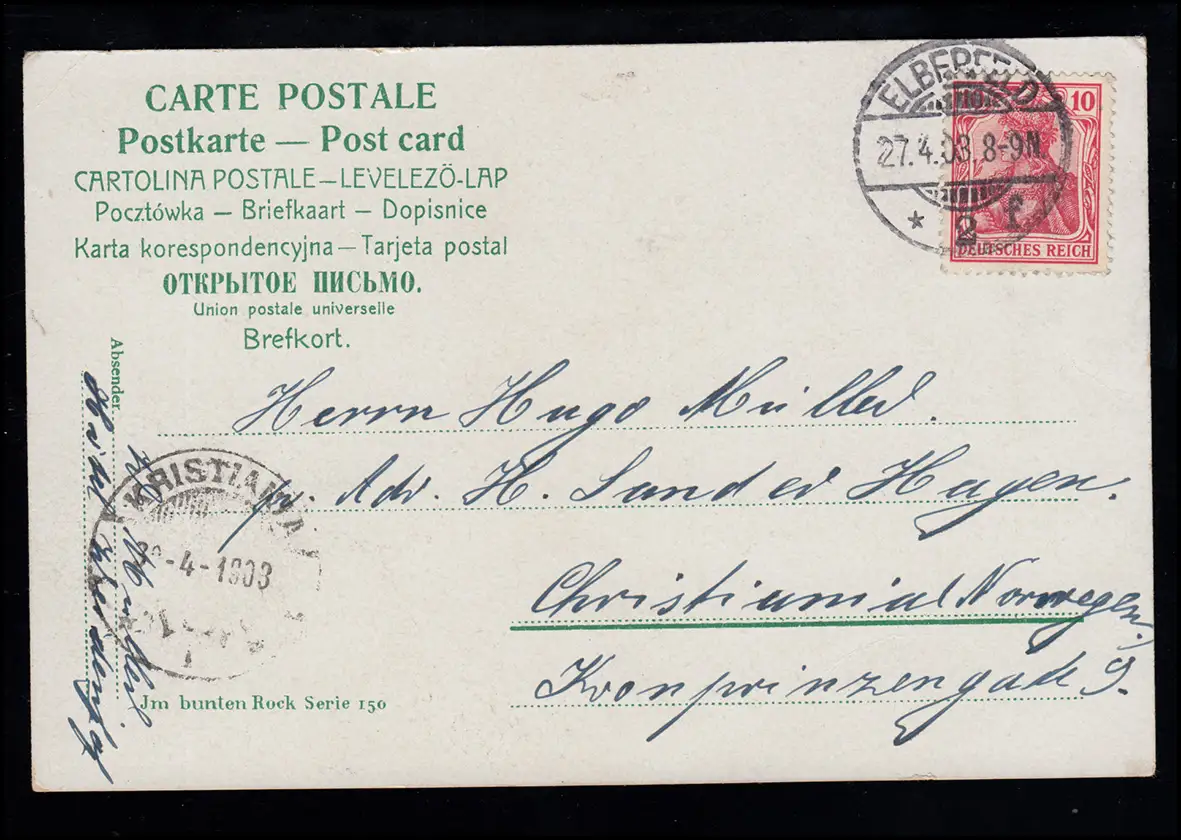 CARTE POSTALE
Postkarte — Post card
CARTOLINA POSTALE – LEVELEZŐ-LAP
Pocztówka – Briefkaart – Dopisnice
Karta korespondencyjna – Tarjeta postal
ОТКРЫТОЕ ПИСЬМО.
Union postale universelle
Brefkort.
ELBERFELD
27.4.03. 8-9N.
* 2 f
10
DEUTSCHES REICH
Absender.
Herrn Hugo Müller.
Adr. H. Sander Hagen.
Christiania/Norwegen.
Kronprinzengad 9.
KRISTIANIA
-4-1903
Jm bunten Rock Serie 150